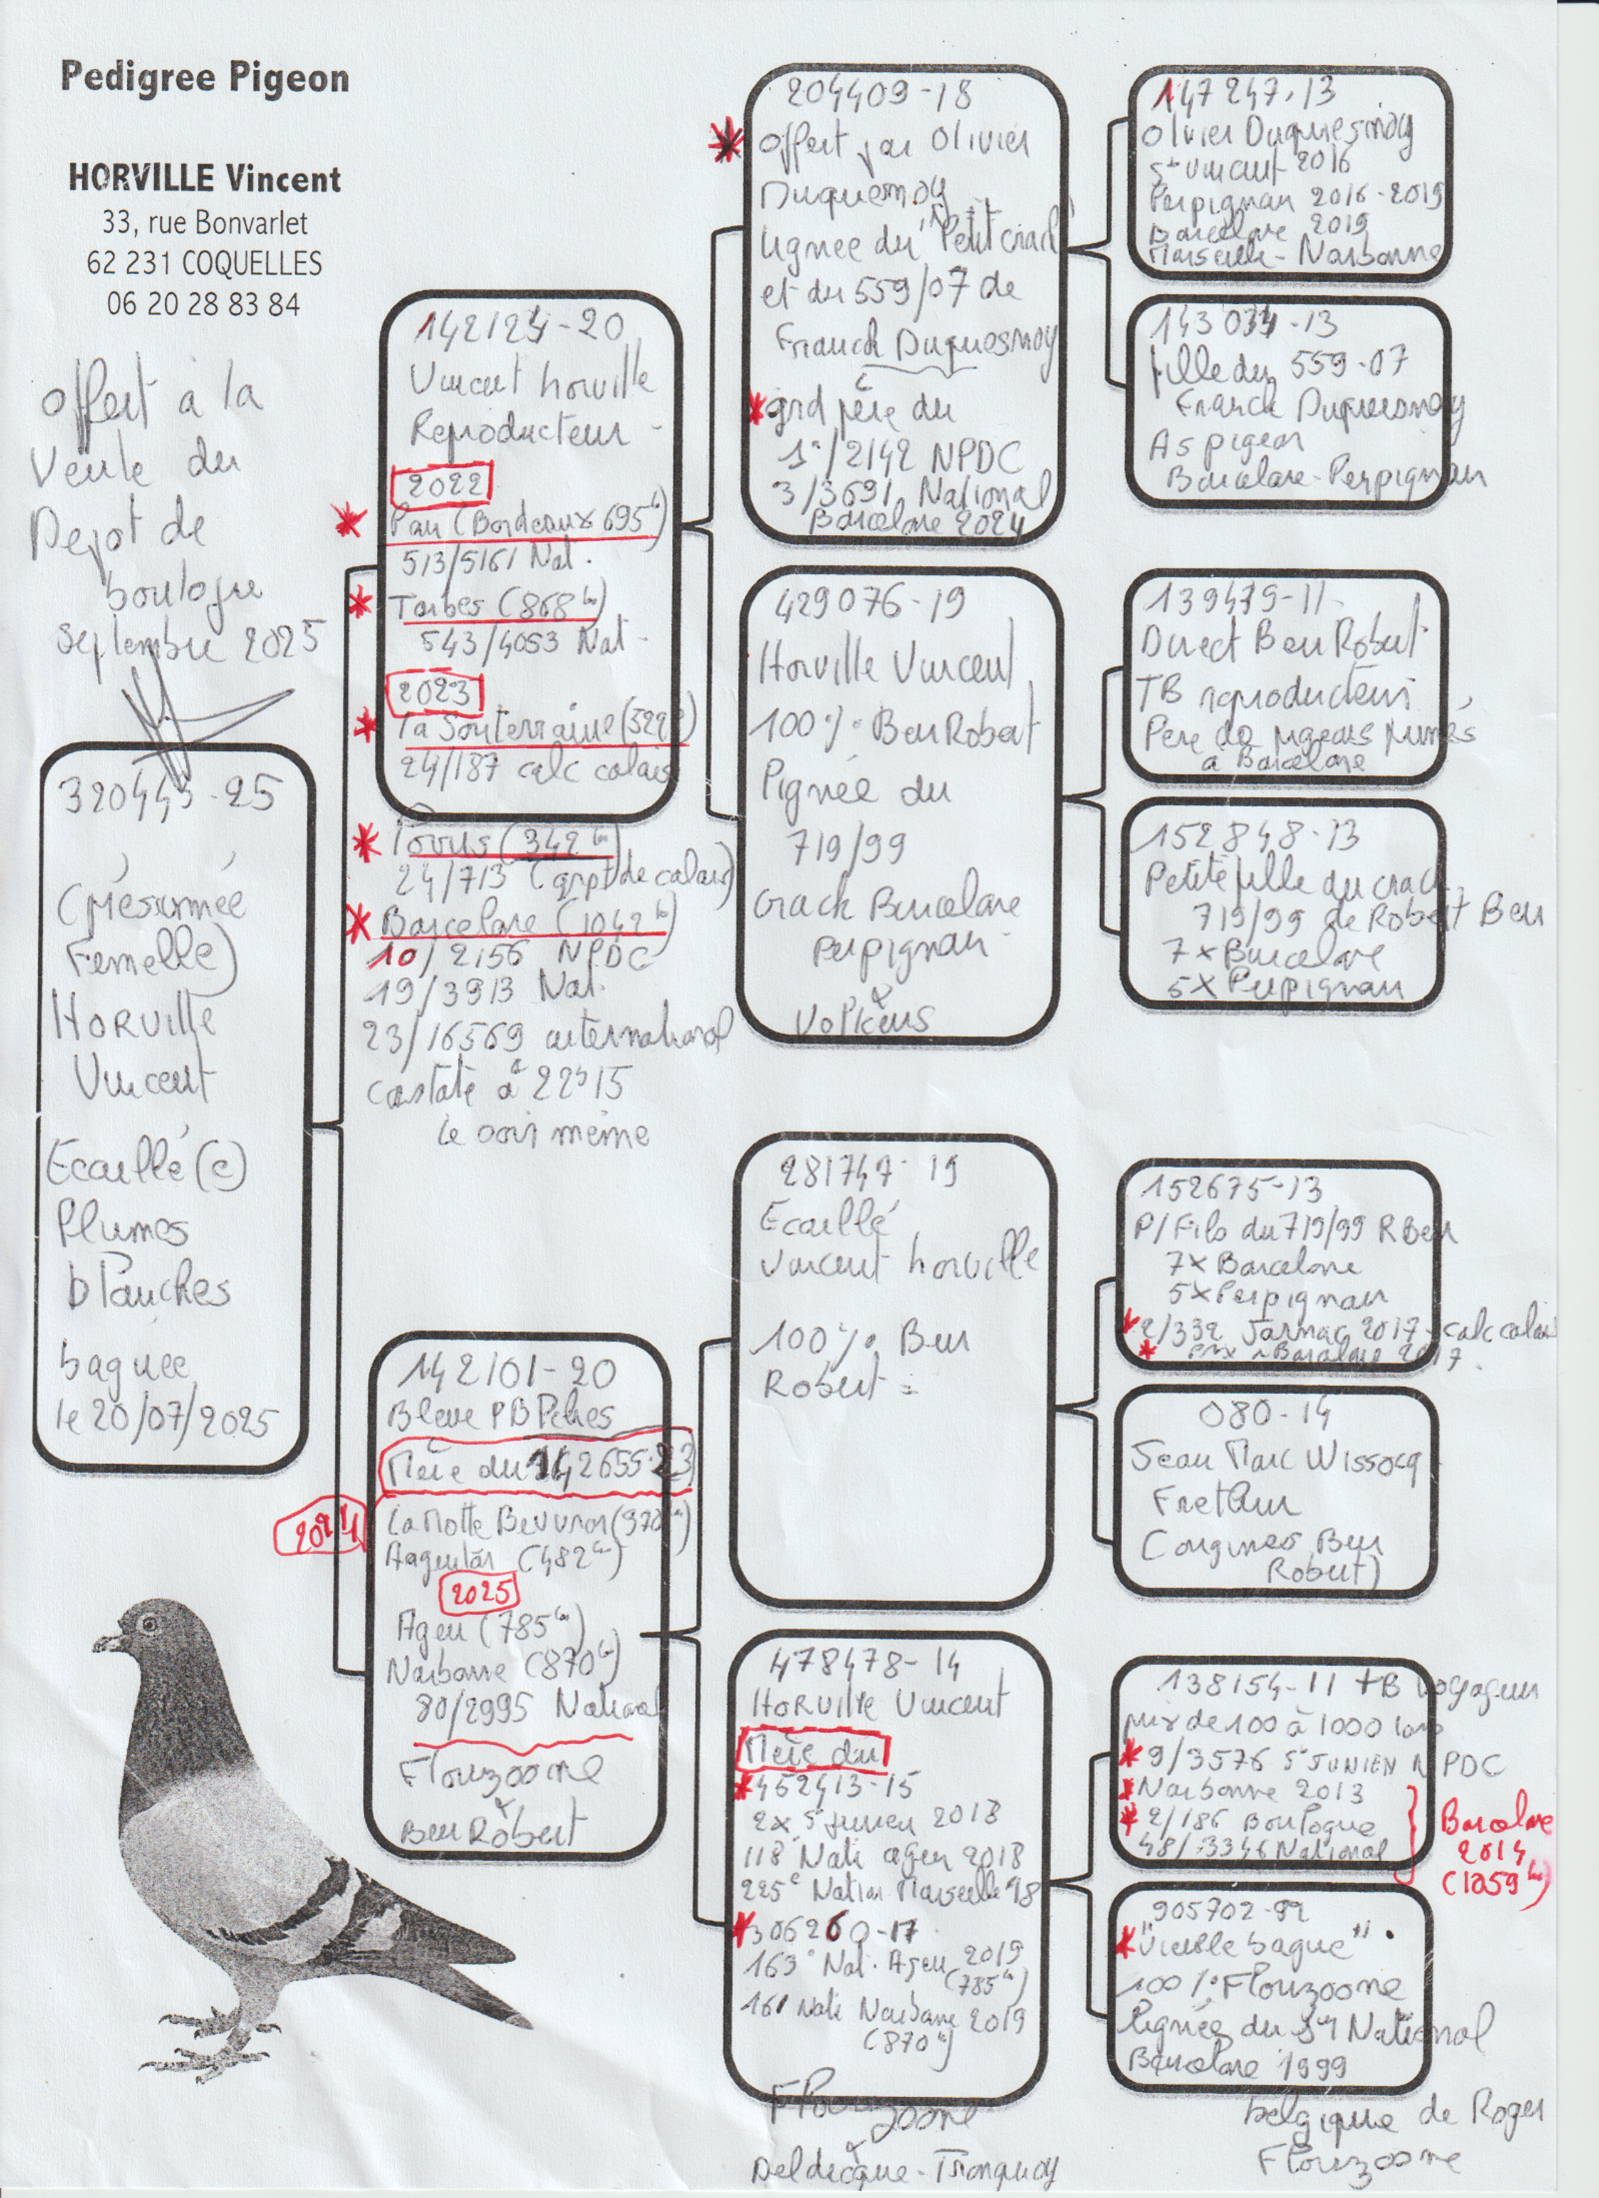 Pedigree Pigeon
HORVILLE Vincent
33, rue Bonvarlet
62 231 COQUELLES
06 20 28 83 84
Offert à la
Vente du
Depot de
boulogne
Septembre 2025
320443-25
(présumée
Femelle)
HORVILLE
Vincent
Ecaillé(e)
Plumes
blanches
baguée
le 20/07/2025
142124-20
Vincent horville
Reproducteur -
2022
Pau (Bordeaux 695 km)
513/5161 Nat.
Tarbes (868 km)
543/4053 Nat.
2023
la Souterraine (529 km)
24/187 calc calais
(342 km)
24/713 (grpt de calais)
Barcelone (1042 km)
10/2156 NPDC
19/3913 Nat.
23/16569 international
Constaté à 22h15
le soir même
142101-20
Bleue PB Pelnes
Mère du 142655-23
2024
La Motte Beuvron (378 km)
(482 km)
2025
Agen (785 km)
Narbonne (870 km)
80/2995 National
Flouzoone
&
Ben Robert
204409-18
Offert par Olivier
Duquesnoy
Lignee du "Petit crack"
et du 559/07 de
Franck Duquesnoy
grd père du
1°/2142 NPDC
3/3691 National
Barcelone 2024
429076-19
Horville Vincent
100% Ben Robert
Lignée du
719/99
Crack Barcelone
Perpignan -
&
Volkens
281747-19
Ecaillé
Vincent horville
100% Ben
Robert =
478478-14
HORVILLE Vincent
Mère du
452413-15
2x St Junien 2018
118° Nati agen 2018
225e Nation Marseille 18
306260-17
163° Nat. Agen 2019
(785 km)
161 Nati Narbonne 2019
(870 km)
Flouzoone
&
Deldicque - Tronquoy
147247-13
Olivier Duquesnoy
St Vincent 2016
Perpignan 2016-2019
Barcelone 2019
Marseille - Narbonne
143034-13
fille du 559-07
Franck Duquesnoy
As pigeon
Barcelone-Perpignan
139479-11
Direct Ben Robert
TB reproducteur
Pere de pigeons primés
a Barcelone
152848-13
Petite fille du crack
719/99 de Robert Ben
7x Barcelone
5x Perpignan
152675-13
P/Fils du 719/99 R Ben
7x Barcelone
5x Perpignan
2/332 Jarnac 2017 - calc calais
prix Barcelone 2017.
080-14
Jean Marc Wissocq
Frethun
(origines Ben
Robert)
138154-11 TB voyageur
prix de 100 à 1000 kms
9/3576 St JUNIEN NPDC
Narbonne 2013
2/186 Boulogne
48/13346 National
Barcelone
2014
(1059 km)
905702-99
"Vieille bague"
100% Flouzoone
Lignée du 1er National
Barcelone 1999
belgique de Roger
Flouzoone